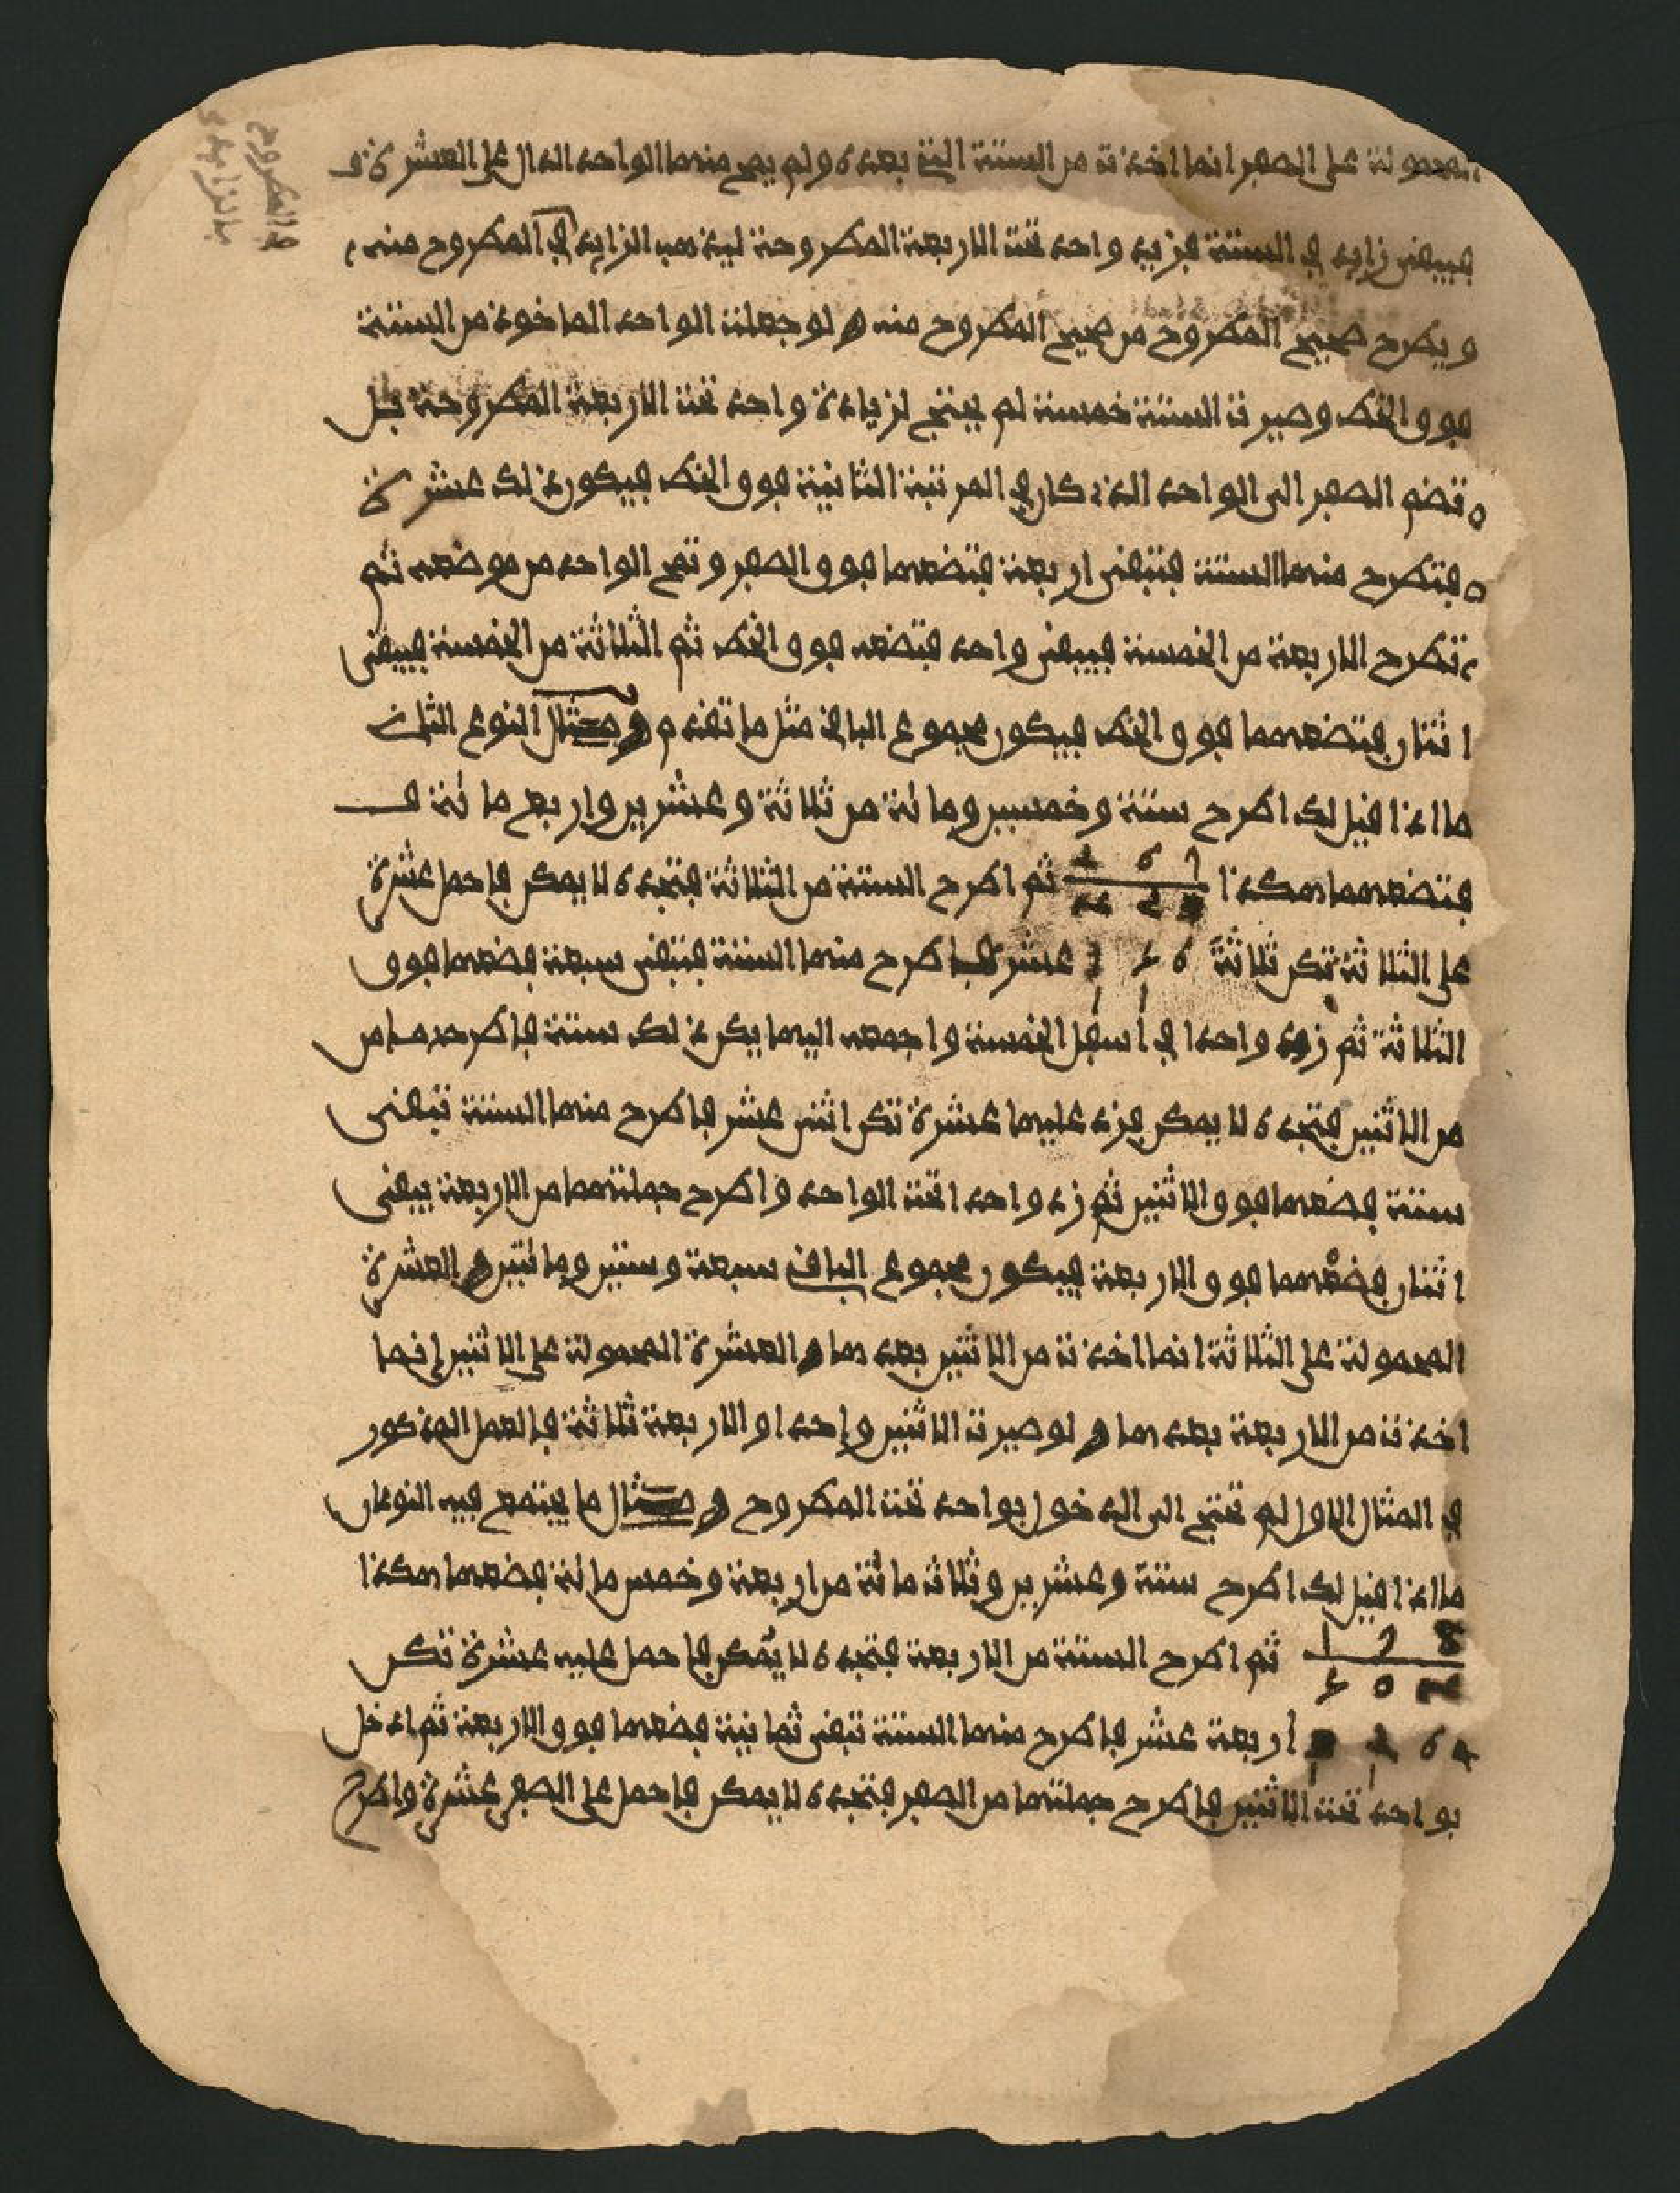 المحمولة على الصفر انما اخذت من الستة التي بعده ولم يمح منها الواحد الدال على العشرة و
فيبقى زايد في الستة فزيد واحد تحت الاربعة المطروحة ليذهب الزايد في المطروح منه
ويطرح صحيح المطروح من صحيح المطروح منه ولو جعلت الواحد الماخوذ من الستة
فوق الخط وصيرت الستة خمسة لم يحتج لزيادة واحد تحت الاربعة المطروحة بل
تضم الصفر الى الواحد الذي كان في المرتبة الثانية فوق الخط فيكون ذلك عشرة
فتطرح منها الستة فتبقى اربعة فتضعها فوق الصفر وتمح الواحد من موضعه ثم
تطرح الاربعة من الخمسة فيبقى واحد فتضعه فوق الخط ثم الثلاثة من الخمسة فيبقى
اثنان فتضعهما فوق الخط فيكون مجموع الباقي مثل ما تقدم ومثال النوع الثالث
ما اذا قيل لك اطرح ستة وخمسين ومائة من ثلاثة وعشرين واربع مائة فـ
فتضعهما هكذا ثم اطرح الستة من الثلاثة فتجده لا يمكن فاحمل عشرة
على الثلاثة تكن ثلاثة عشر فاطرح منها الستة فتبقى سبعة فضعها فوق
الثلاثة ثم زد واحدا في اسفل الخمسة واجمعه اليها يكن ذلك ستة فاطرحها من
من الاثنين فتجده لا يمكن فزد عليها عشرة تكن اثنى عشر فاطرح منها الستة تبقى
ستة فضعها فوق الاثنين ثم زد واحدا تحت الواحد واطرح جملتهما من الاربعة يبقى
اثنان فضعهما فوق الاربعة فيكون مجموع الباقي سبعة وستين ومائتين والعشرة
المحمولة على الثلاثة انما اخذت من الاثنين بعدها والعشرة المحمولة على الاثنين انما
اخذت من الاربعة بعدها ولو صيرت الاثنين واحدا والاربعة ثلاثة فالعمل المذكور
في المثال الاول لم تحتج الى الدخول بواحد تحت المطروح ومثال ما يجتمع فيه النوعان
ما اذا قيل لك اطرح ستة وعشرين وثلاث مائة من اربعة وخمس مائة فضعها هكذا
ثم اطرح الستة من الاربعة فتجده لا يمكن فاحمل عليه عشرة تكن
اربعة عشر فاطرح منها الستة تبقى ثمانية فضعها فوق الاربعة ثم ادخل
بواحد تحت الاثنين فاطرح جملتها من الصفر فتجده لا يمكن فاحمل على الصفر عشرة واطرح